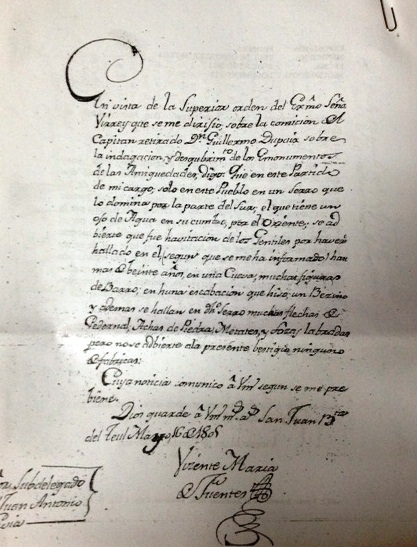 En vista de la Superior orden del Exmo Señr
Virrey que se me dirisio, sobre la comicion del
Capitan retirado Dn Guillermo Dupaix sobre
la indagacion, y desqubrimto de los Monumentos
de las Antiguedades, digo: Que en este Partido
de mi cargo, solo en este Pueblo en un Serro que
lo domina por la parte del Sur, el que tiene un
oso de Agua en su cumbre, por el Oriente, se ad
bierte que fue havitacion de los Gentiles por haver
hallado en el (segun que se me ha informado) hau
mas de beinte años, en una Cueva, muchas figuras
de Barro, en huna escabacion que hiso, un Bezino
y ademas se hallan en dho Serro muchas flechas de
Pedernal, Achas de Piedra, Metates, y losas labradas
pero no se adibierte ala presente bestigio, ninguno
de fabricas.
Cuya noticia comunico â Vm segun se me pre
biene.
Dios guarde â Vm ms as San Juan Bta
del Teul Marzo 16 de 1805
Vizente Maria
de Fuentes
Subdelegado
Juan Antonio